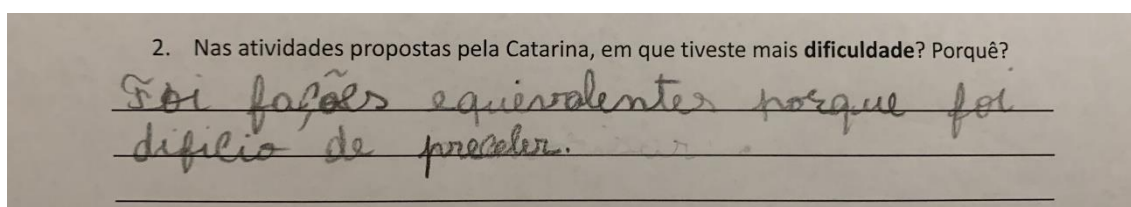 2. Nas atividades propostas pela Catarina, em que tiveste mais dificuldade? Porquê?
Foi fações equievalentes porque foi
dificio de preceber.